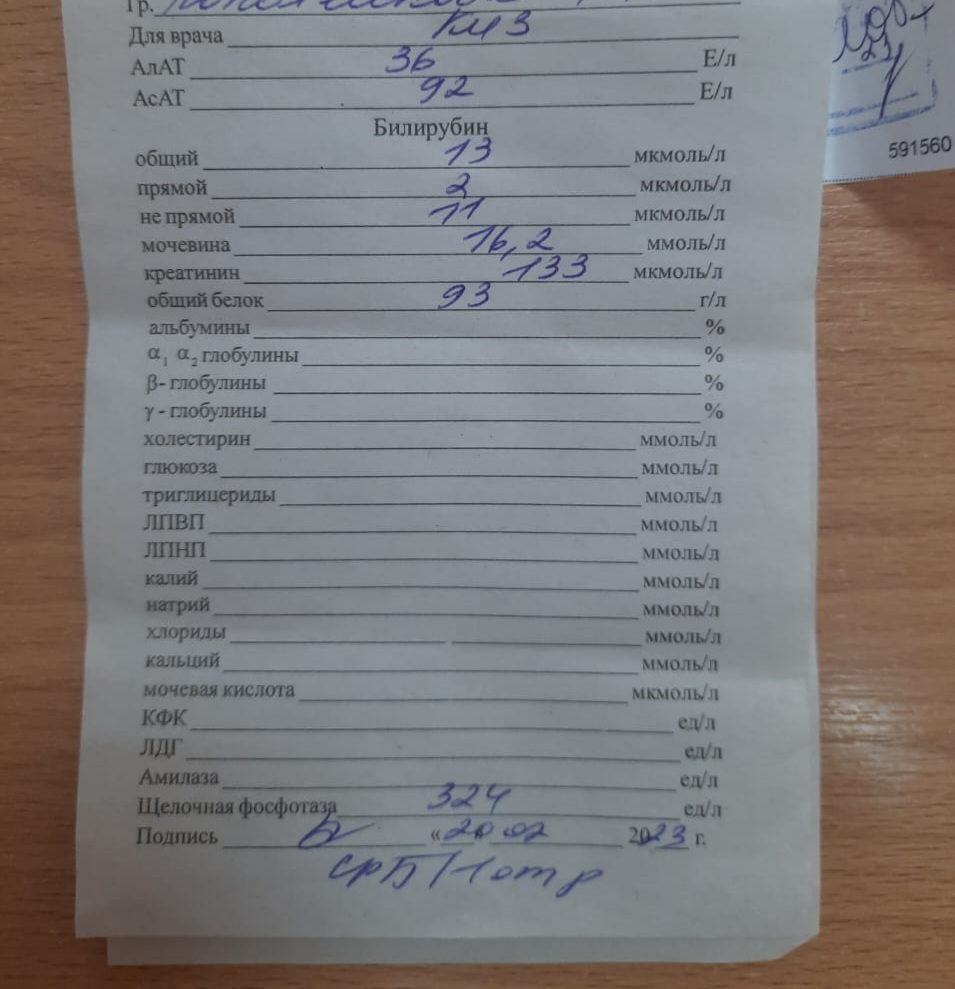 Гр.
Для врача КИЗ
АлАТ 36 Е/л
АсАТ 92 Е/л
Билирубин
общий 13 мкмоль/л
прямой 2 мкмоль/л
не прямой 11 мкмоль/л
мочевина 16,2 ммоль/л
креатинин 133 мкмоль/л
общий белок 93 г/л
альбумины %
α₁ α₂ глобулины %
β- глобулины %
γ - глобулины %
холестирин ммоль/л
глюкоза ммоль/л
триглицериды ммоль/л
ЛПВП ммоль/л
ЛПНП ммоль/л
калий ммоль/л
натрий ммоль/л
хлориды ммоль/л
кальций ммоль/л
мочевая кислота мкмоль/л
КФК ед/л
ЛДГ ед/л
Амилаза ед/л
Щелочная фосфотаза 324 ед/л
Подпись «20» 02 2023 г.
СРБ
591560